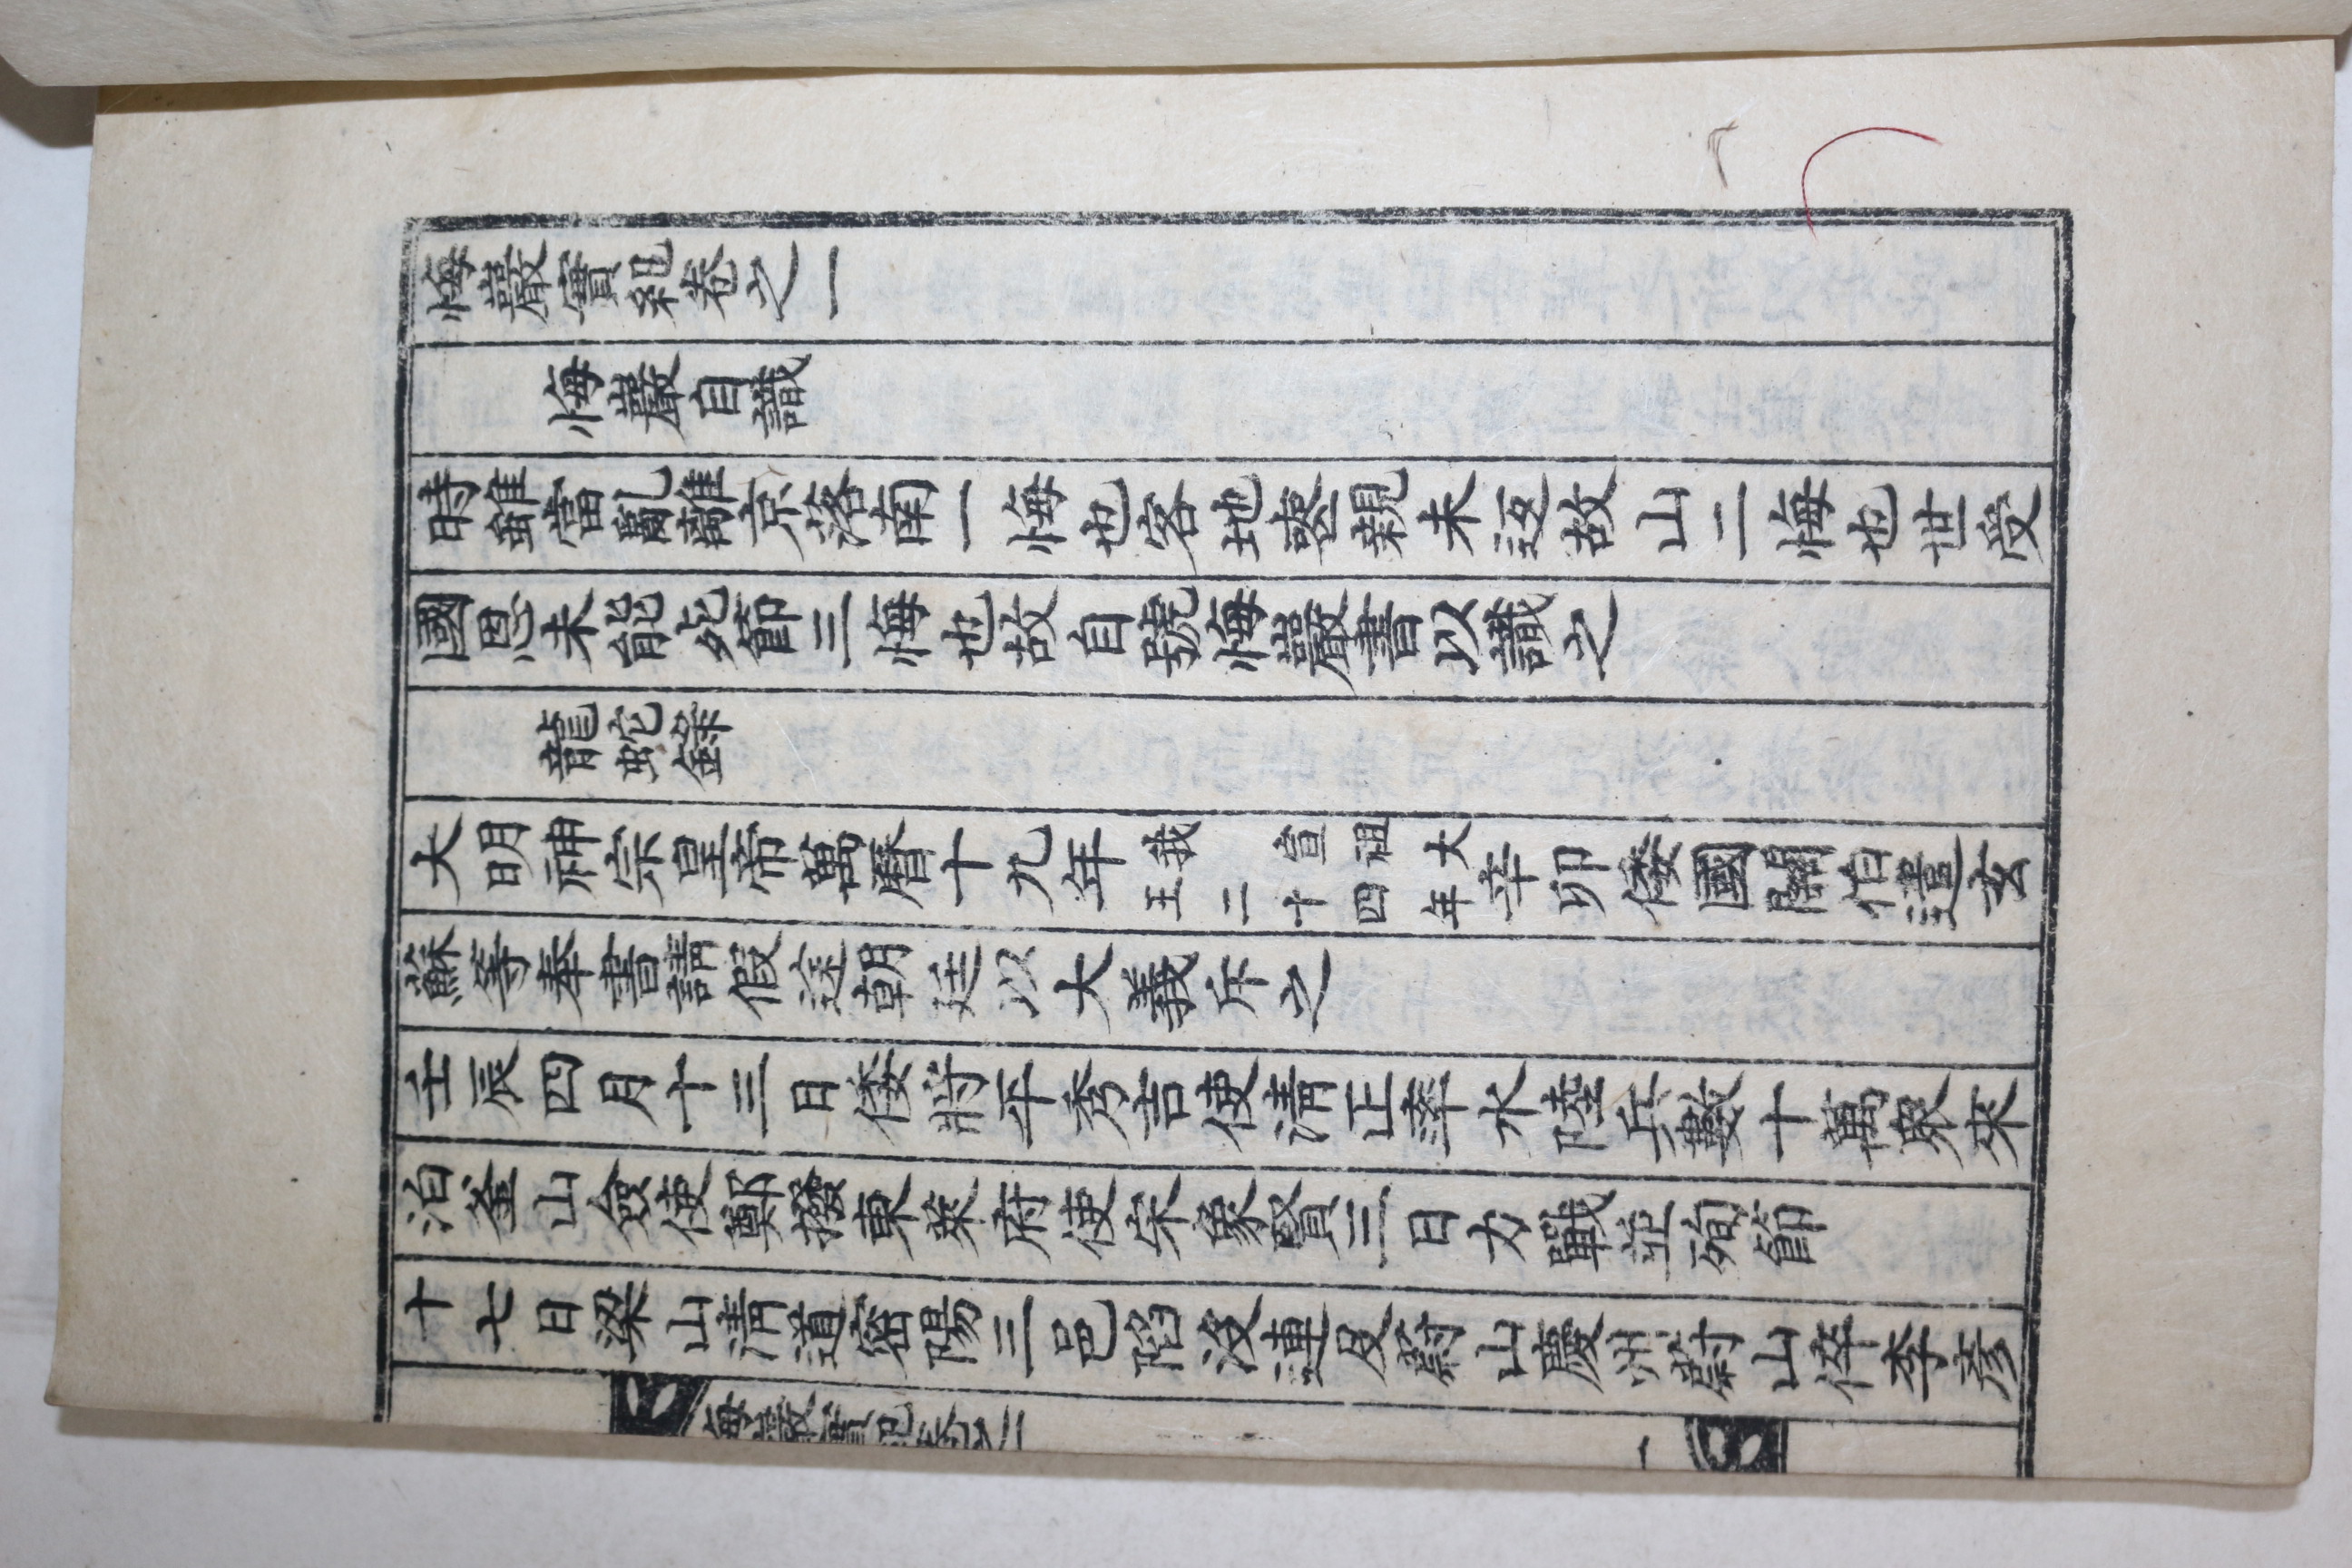 悔巖實紀卷之一
悔巖自識
時雖當亂離京洛南一悔也客地喪親未返故山二悔也世受
國恩未能死節三悔也故自號悔巖書以識之
龍蛇錄
大明神宗皇帝萬曆十九年我宣祖大王二十四年辛卯倭國關伯遣玄
蘇等奉書請假途朝廷以大義斥之
壬辰四月十三日倭將平秀吉使淸正率水陸兵數十萬衆來
泊釜山僉使鄭撥東萊府使宋象賢三日力戰並殉節
十七日梁山淸道密陽三邑陷沒連及蔚山慶州蔚山倅李彦
悔巖實紀卷之一
一